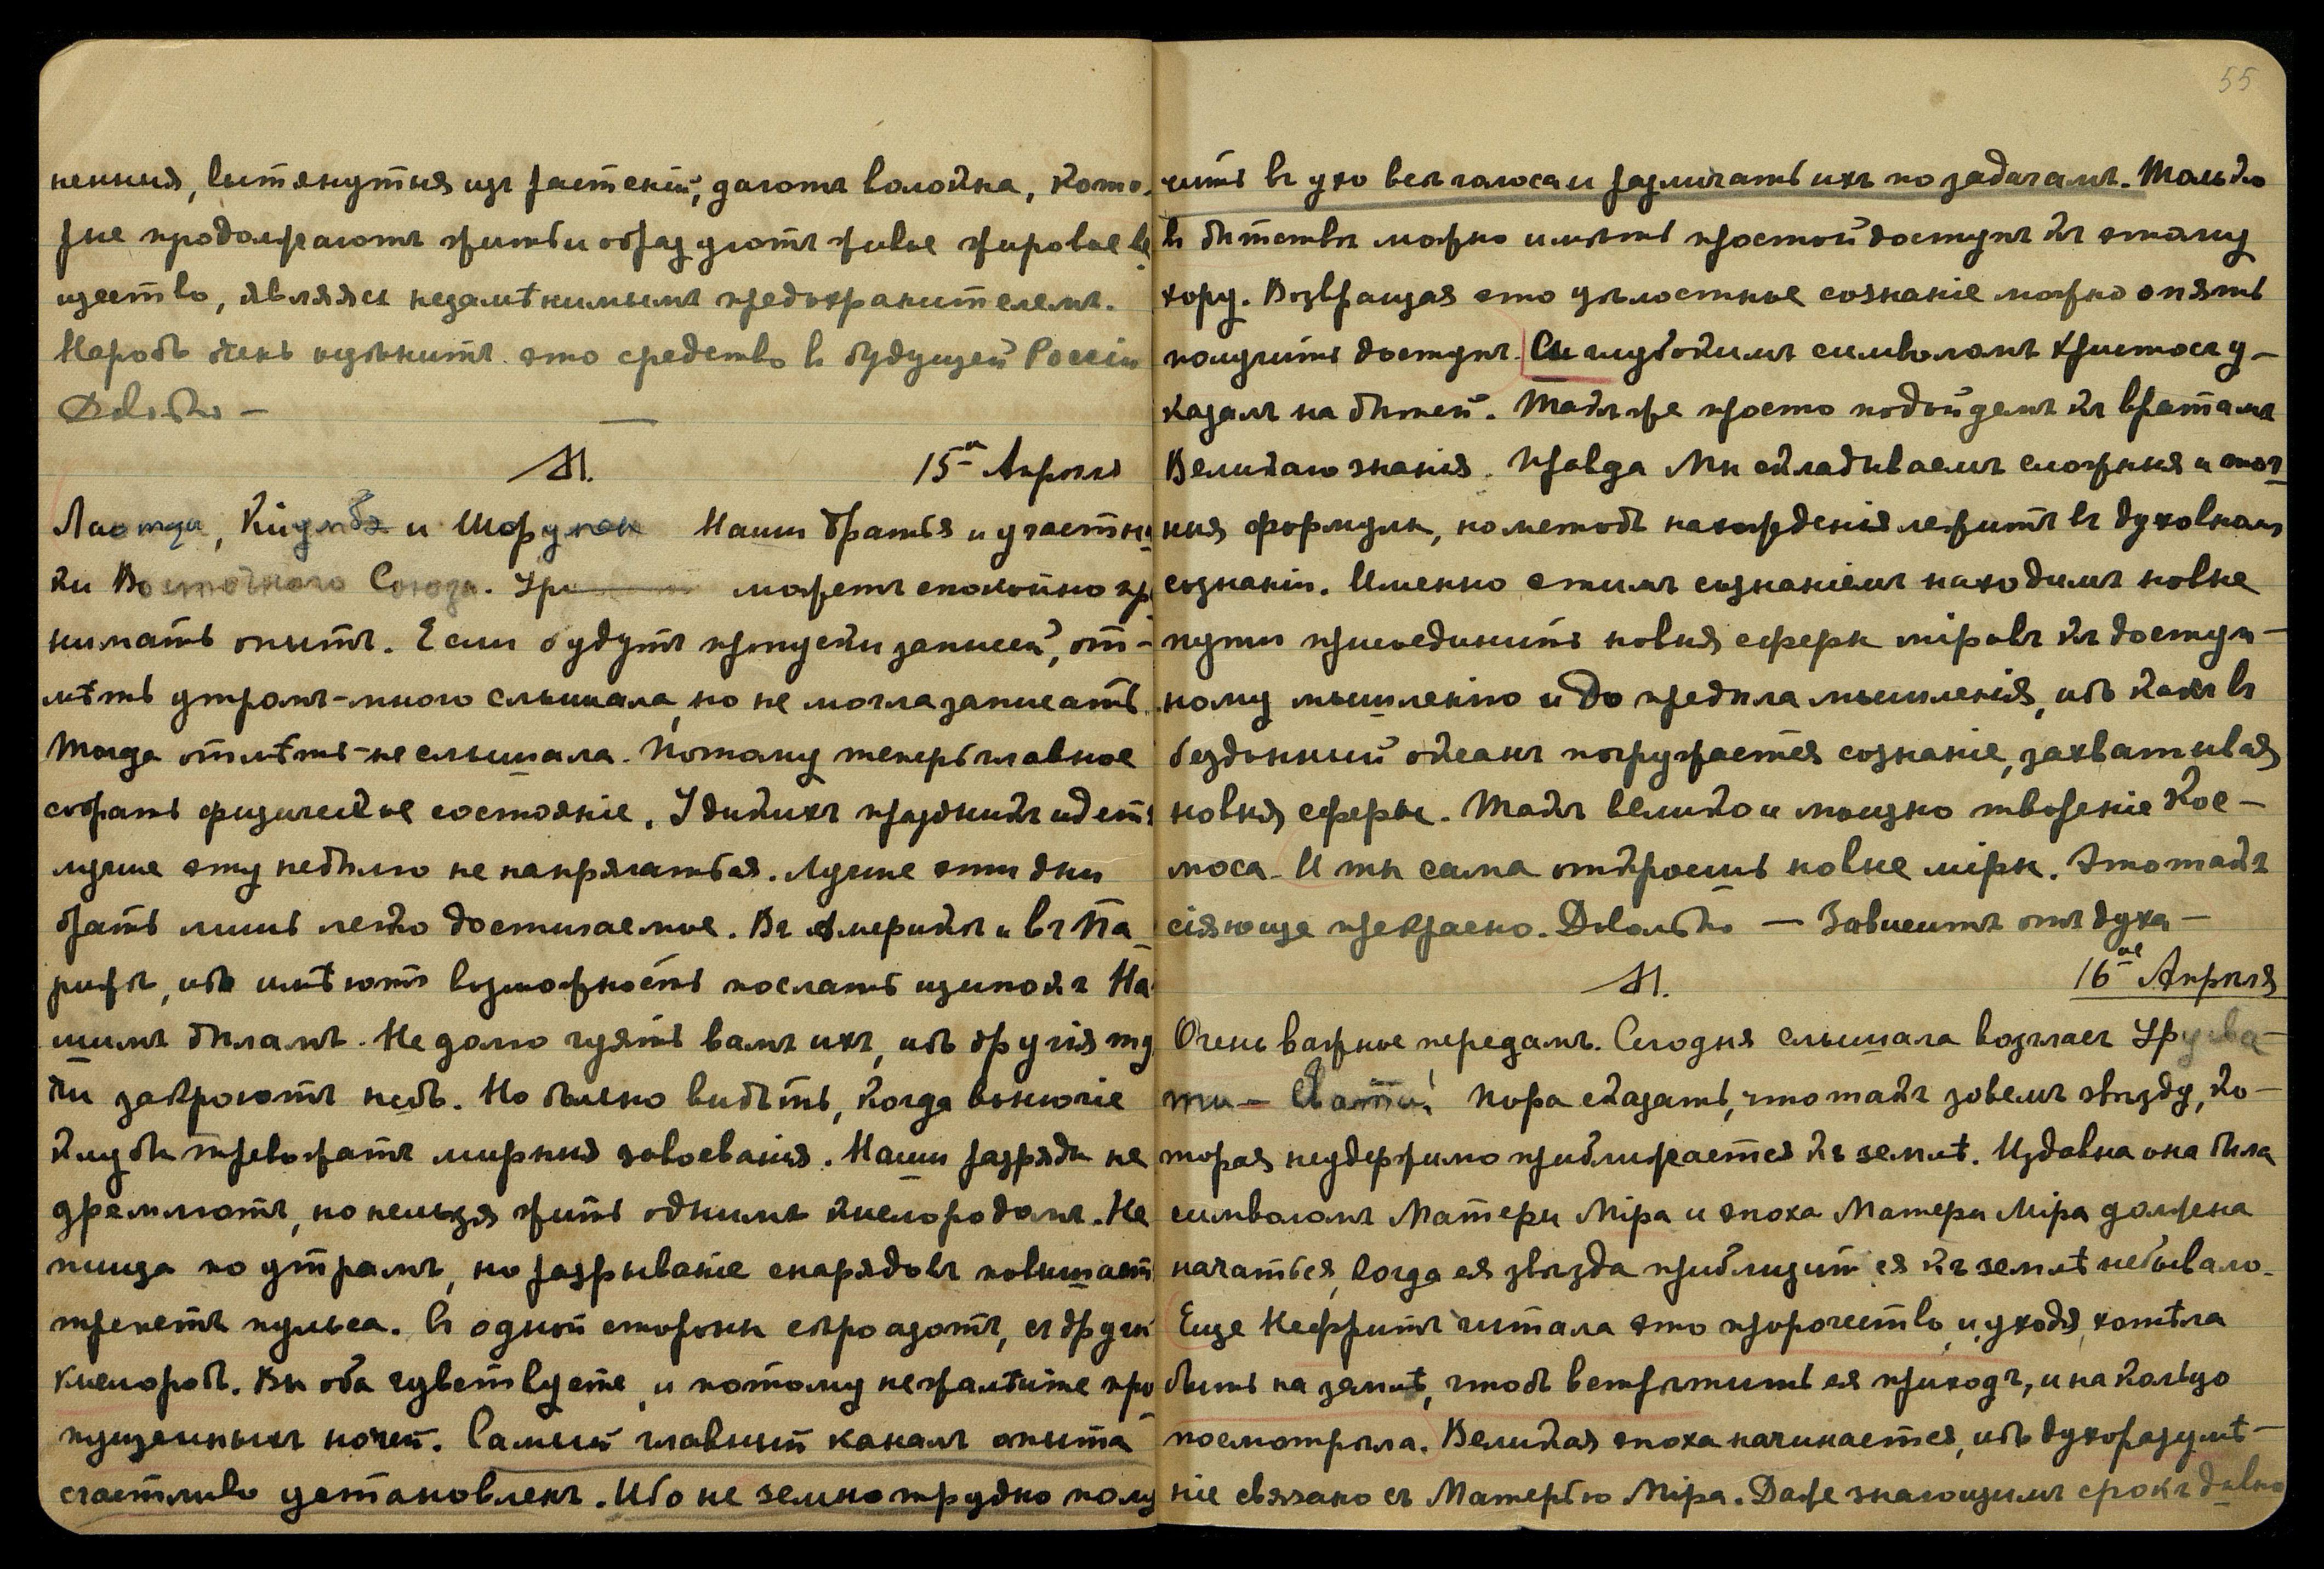 ненныя, вытянутыя изъ растеній, даютъ волокна, кото-
рые продолжаютъ жить и образуютъ живое жировое ве
щество, являясь незамѣнимымъ предохранителемъ.
Народъ очень оцѣнитъ это средство в будущей Россіи
Довольно —
М. 15го Апрѣля
Лаотзи, и Наши братья и участни
ки Восточнаго Союза. может спокойно при
нимать опытъ. Если будутъ пропуски записей, от-
мѣть утромъ - много слышала, но не могла записать.
Тогда отмѣть - не слышала. Потому теперь главное
собрать физическое состояніе. У дикихъ праздникъ идетъ
лучше эту недѣлю не напрягаться. Лучше эти дни
брать лишь легко достигаемое. Въ Америкѣ и въ Па-
рижѣ, ибо имѣютъ возможность послать щипокъ На-
шимъ дѣламъ. Не долго чуять вамъ ихъ, ибо другія ту
чи закроютъ небо. Но больно видѣть, когда вонючіе
клубы тревожатъ мирныя завоеванія. Наши разряды не
дремлютъ, но нельзя жить однимъ кислородомъ. Не
пища по утрамъ, но разрываніе снарядовъ повышаетъ
трепетъ пульса. С одной стороны сѣро азотъ, съ другой
кислородъ. Вы оба чувствуете, и потому не жалѣйте про
пущенныхъ ночей. Самый главный каналъ опыта
счастливо установленъ. Ибо не земно трудно полу
55
чить въ ухо всѣ голоса и различать ихъ по задачамъ. Только
в дѣтствѣ можно имѣть простой доступъ къ этому
хору. Возвращая это цѣлостное сознаніе можно опять
получить доступъ. Си глубокимъ символомъ Христосъ у-
казалъ на дѣтей. Такъ же просто подойдемъ къ вратамъ
Великаго знанія. Правда Мы складываемъ сложныя и точ
ныя формулы, но методъ нахожденія лежитъ въ духовномъ
сознаніи. Именно этимъ сознаніемъ находимъ новые
пути присоединить новыя сферы міровъ къ доступ-
ному мышленію и до предѣла мышленія, ибо какъ въ
бездонный океанъ погружается сознаніе, захватывая
новыя сферы. Такъ велико и мощно твореніе Кос-
моса. И ты сама откроешь новые міры. Это такъ
сіяюще прекрасно. Довольно — Зависитъ отъ духа —
М. 16ое Апрѣля
Очень важное передамъ. Сегодня слышала возгласъ Урусва-
ти — Пора сказать, что такъ зовемъ звѣзду, ко-
торая неудержимо приближается къ землѣ. Издавна она была
символомъ Матери Міра и эпоха Матери Міра должна
начаться, когда ея звѣзда приблизится къ землѣ небывало.
Еще Нефритъ читала это пророчество, и уходя, хотѣла
быть на землѣ, чтобъ встрѣтить ея приходъ, и на кольцо
посмотрѣла. Великая эпоха начинается, ибо духоразумѣ-
ніе связано съ Матерью Міра. Даже знающимъ срокъ дивно